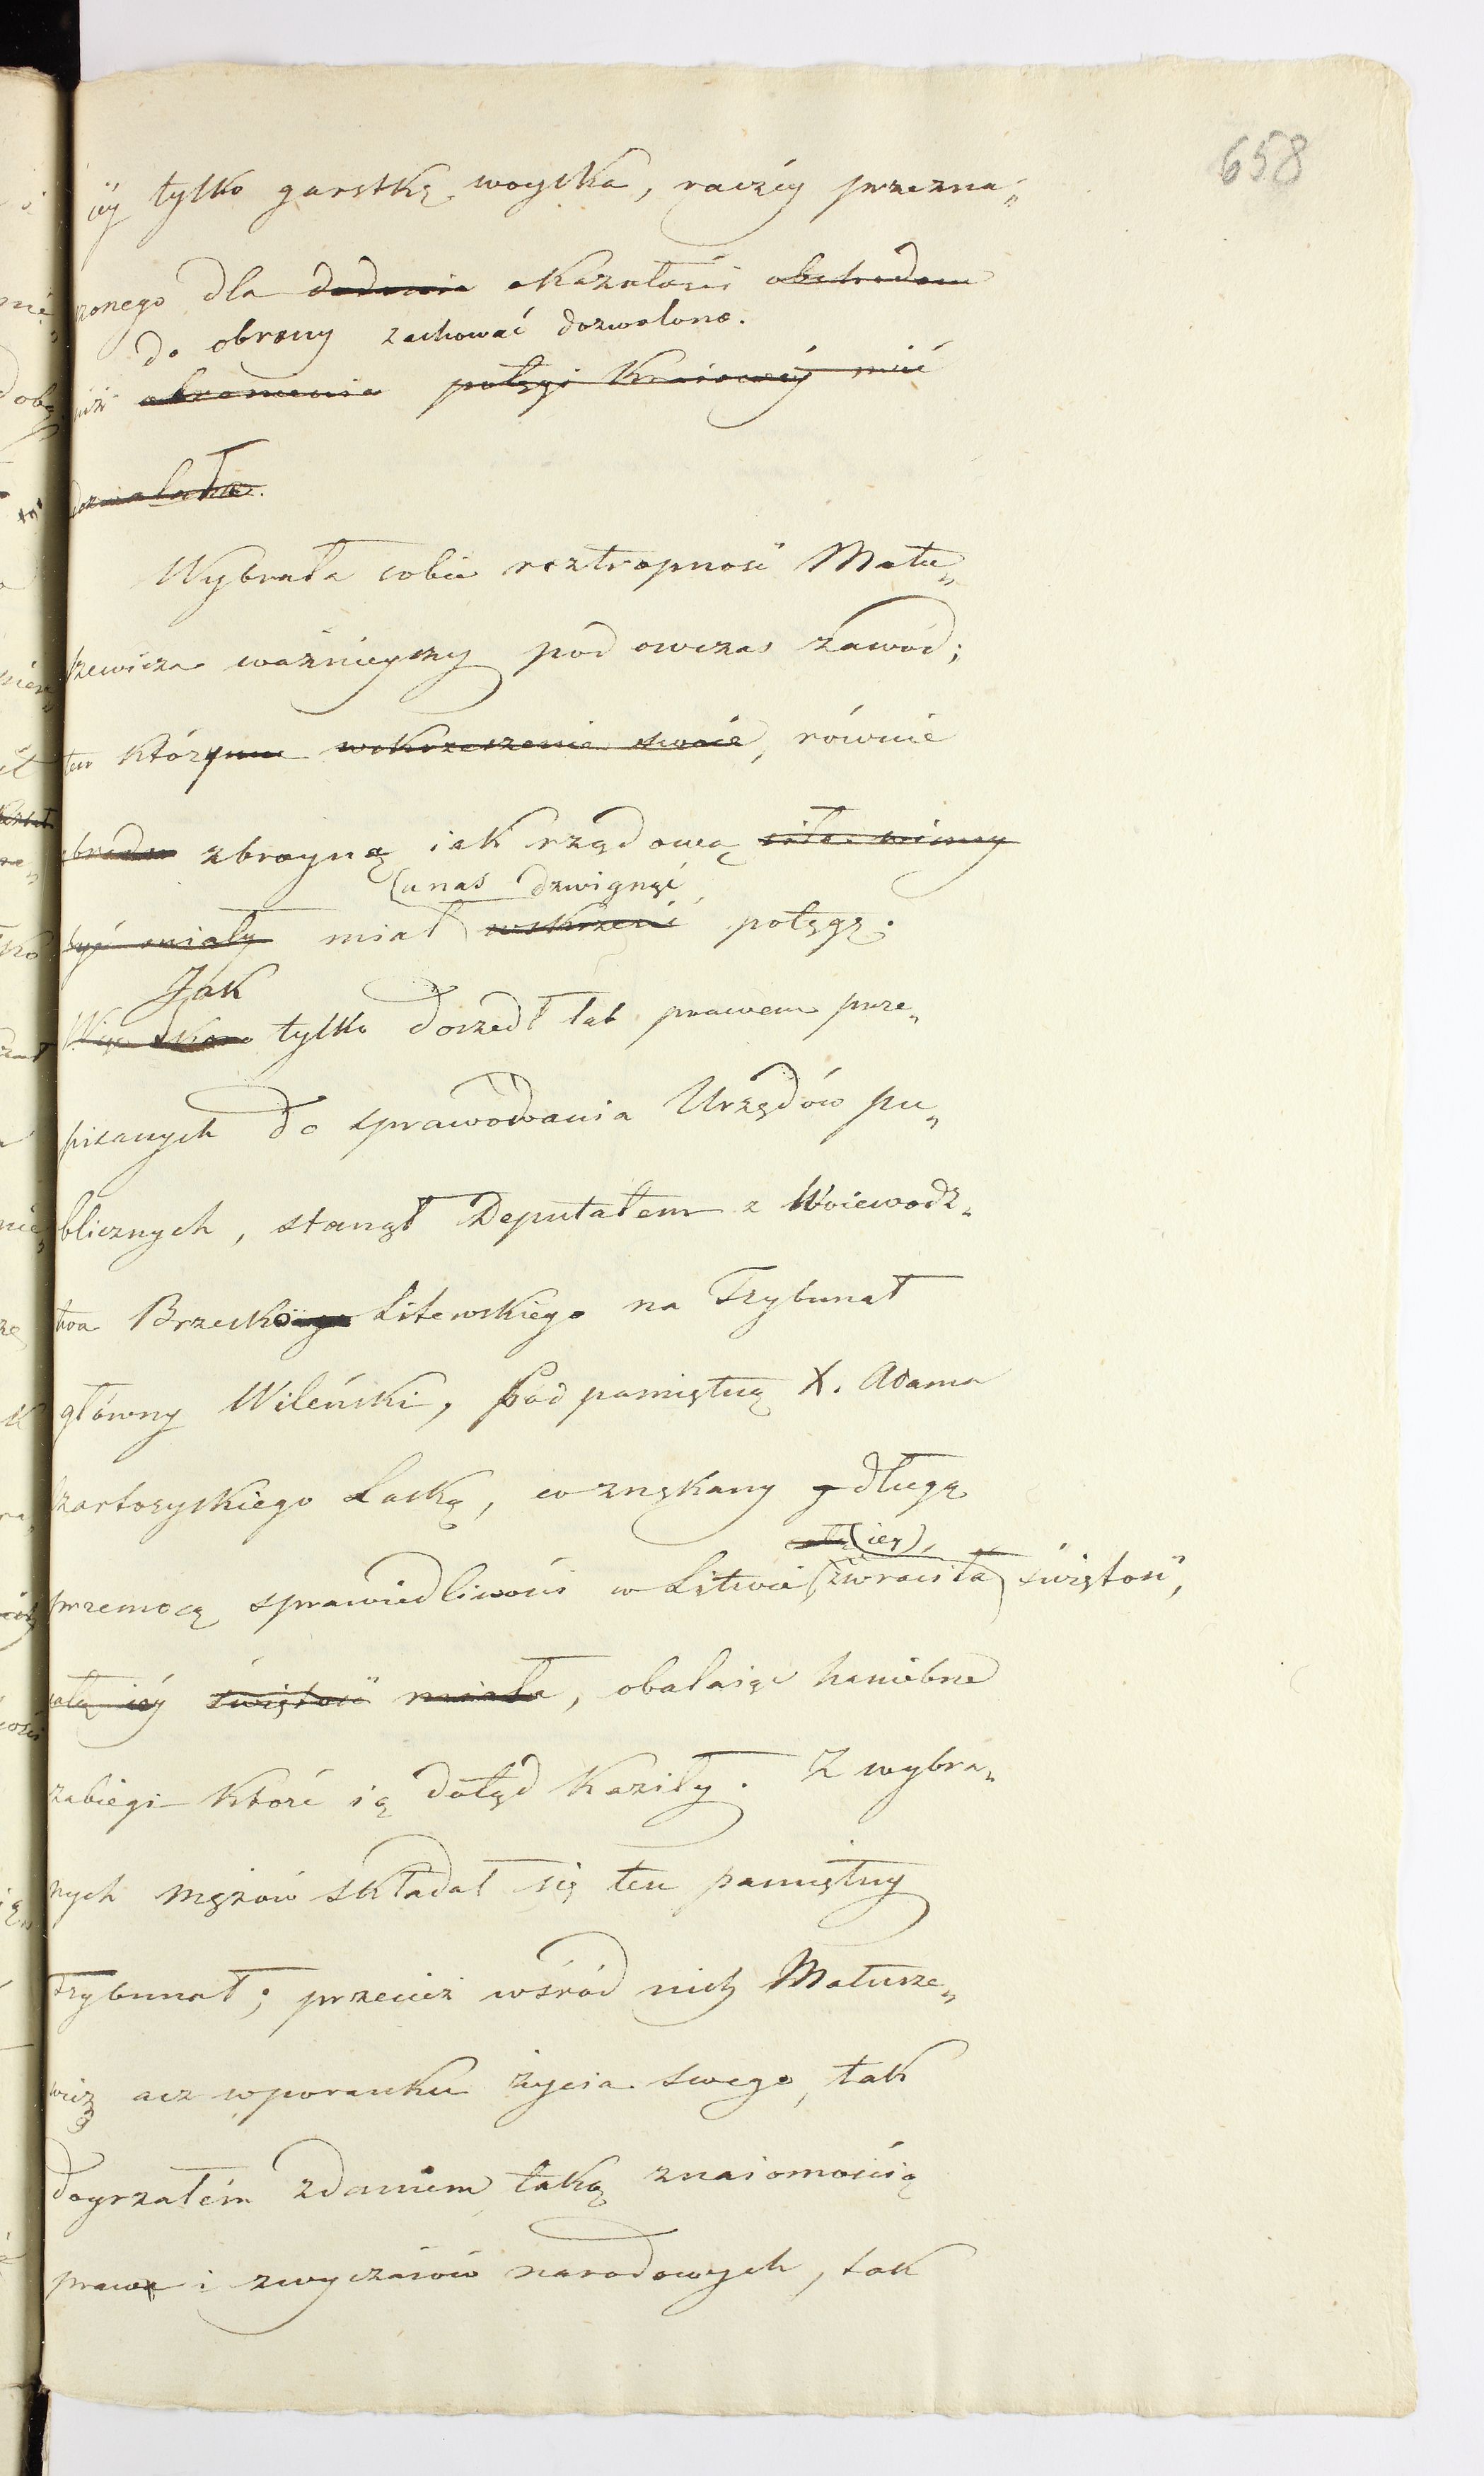 658
iey tylko garstkę woyska, raczéy przezna„
czonego dla dodania okazałości obchodom
do obrony zachować dozwolono.
niż obronienia potęgi kraiowéy mieć
dozwalała.
Wybrała sobie roztropność Matu„
szewicza ważnieyszy pod owczas zawód;
ten którym wskrzeszenie swoie, równie
zbroyną iak rządową siła winny
(u nas dzwignąć
być miały miał wskrzesić potęgę.
Jak
Więc skoro tylko doszedł lat prawem prze„
pisanych do sprawowania Urzędów pu„
blicznych, stanął Deputatem z Woiewodz„
twa Brzesko Litewskiego na Trybunał
główny Wileński, pod pamiętną X. Adama
Czartoryskiego Laską, co znękany długą
(iey),
przemocą sprawiedliwości w Litwie (zwróciła) świętość,
całą iey świętość miała, obalaiąc haniebne
zabiegi które ią dotąd kaziły. Z wybra„
nych mężów składał się ten pamiętny
Trybunał; przecież wśród nich Matusze„
wicz acz w poranku życia swego, tak
doyrzałém zdaniem, taką znaiomością
prawa i zwyczaiów narodowych, tak